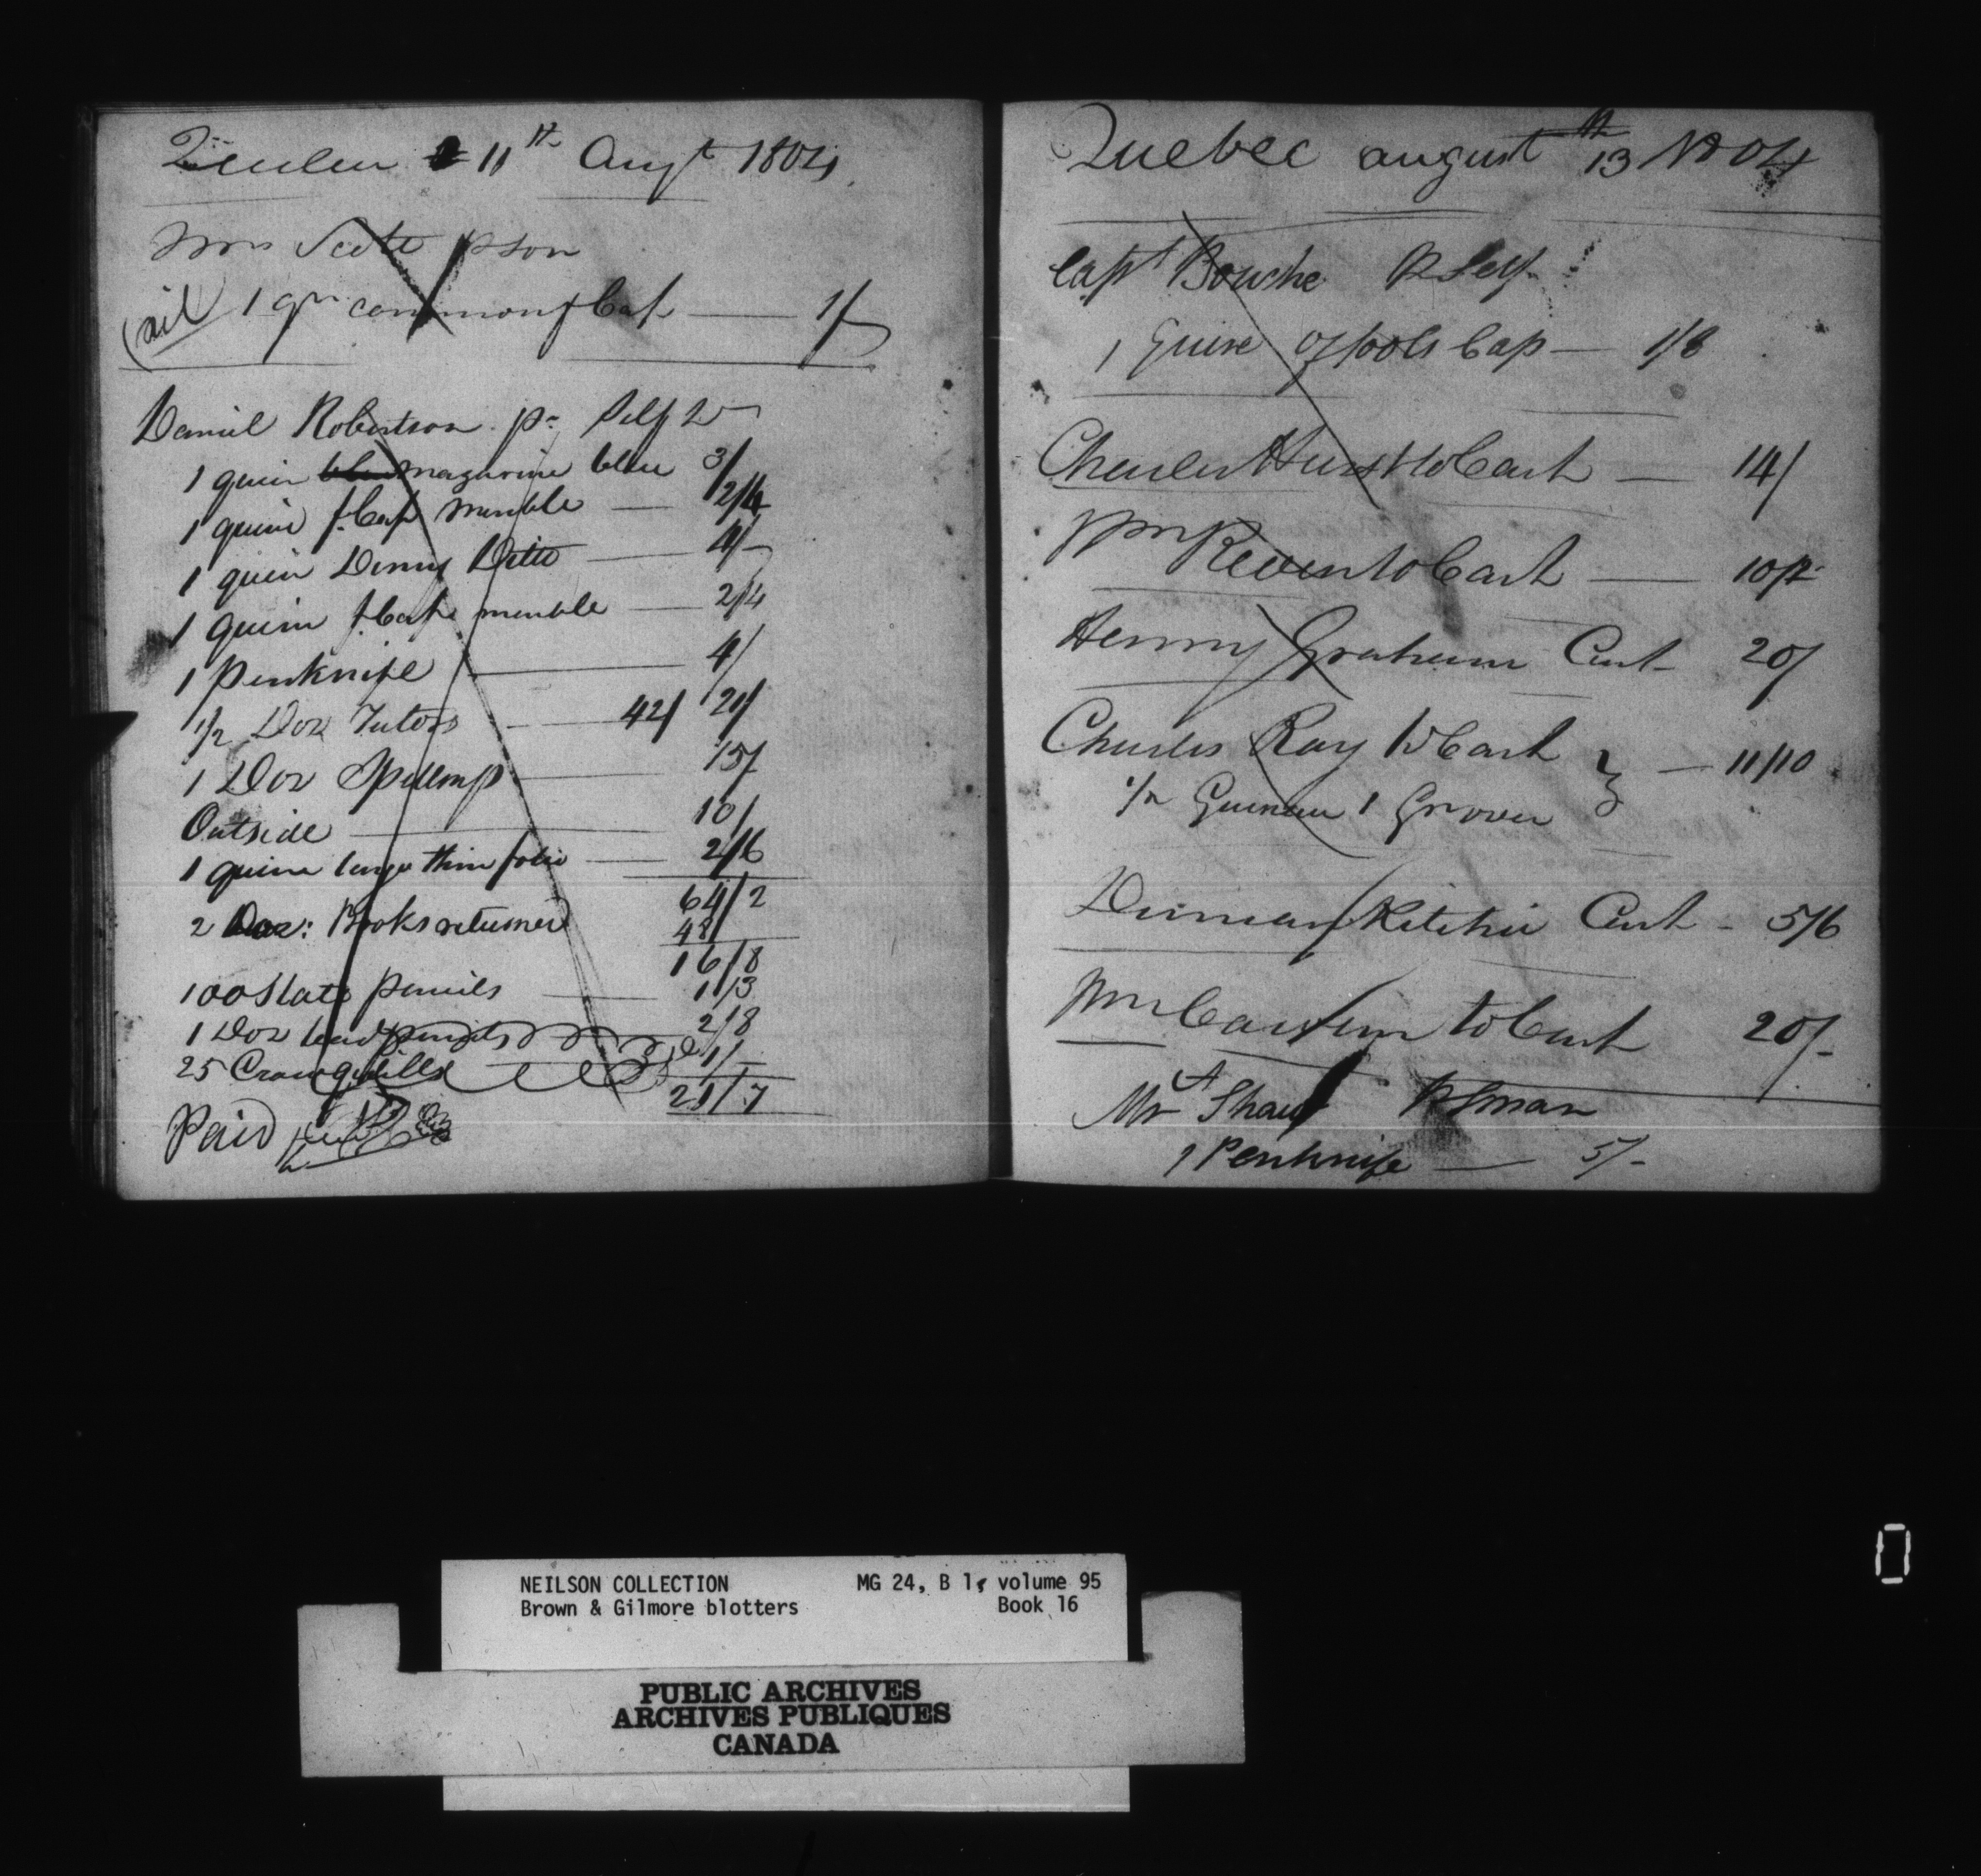 Quebec 11th Augt 1804
Mrs Scott p Son
1 qr common f Cap — 1/
Daniel Robertson pr Self
1 quire blue mazarine blue 3/
1 quire f. Cap marble — 2/4
1 quire Demy Ditto — 4/-
1 quire f. Cap marble — 2/4
1 Penknife — 4/
1/2 Doz Tutors — 42/ 21/
1 Doz Spellings — 15/
Outside — 10/
1 quire large thin folio — 2/6
64/2
2 Doz: Books returned 48/
16/8
100 Slate Pencils — 1/3
1 Doz lead pencils 2/8
25 Crow quills 1/-
21/7
Paid
Quebec august 13th 1804
Capt Bouche P Self
1 Quire of fools Cap — 1/8
Charles Hunt to Cash — 14/
Wm Reven to Cash — 10/
Henry Graham Cash 20/
Charles Ray to Cash } — 11/10
1/2 Guinea 1 Crown
Duncan Ritchie Cash - 5/6
Wm to Cash 20/-
Mr Shaw P Sman
1 Penknife — 5/-
NEILSON COLLECTION MG 24, B 1, volume 95
Brown & Gilmore blotters Book 16
PUBLIC ARCHIVES
ARCHIVES PUBLIQUES
CANADA
0